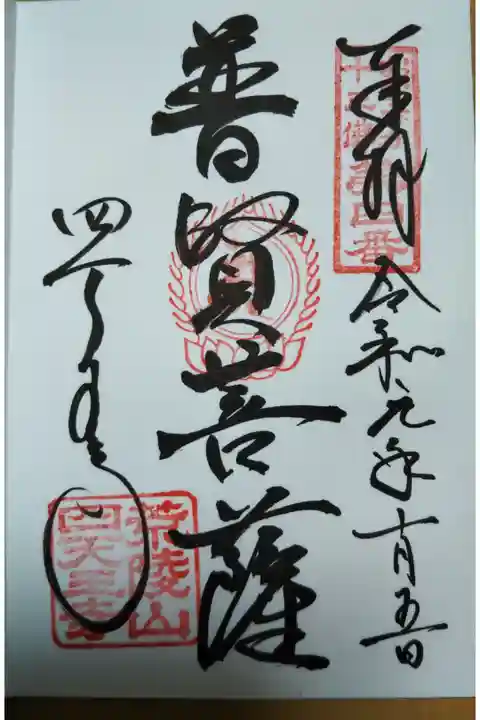 奉拝
令和元年十月五日
普賢菩薩
四天王寺
荒陵山
四天王寺